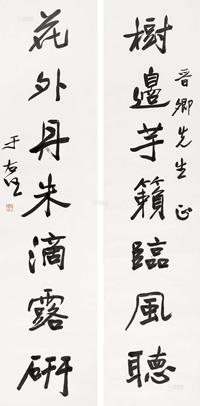 晉卿先生正
樹邊竽籟臨風聽
花外丹朱滴露研
于右任